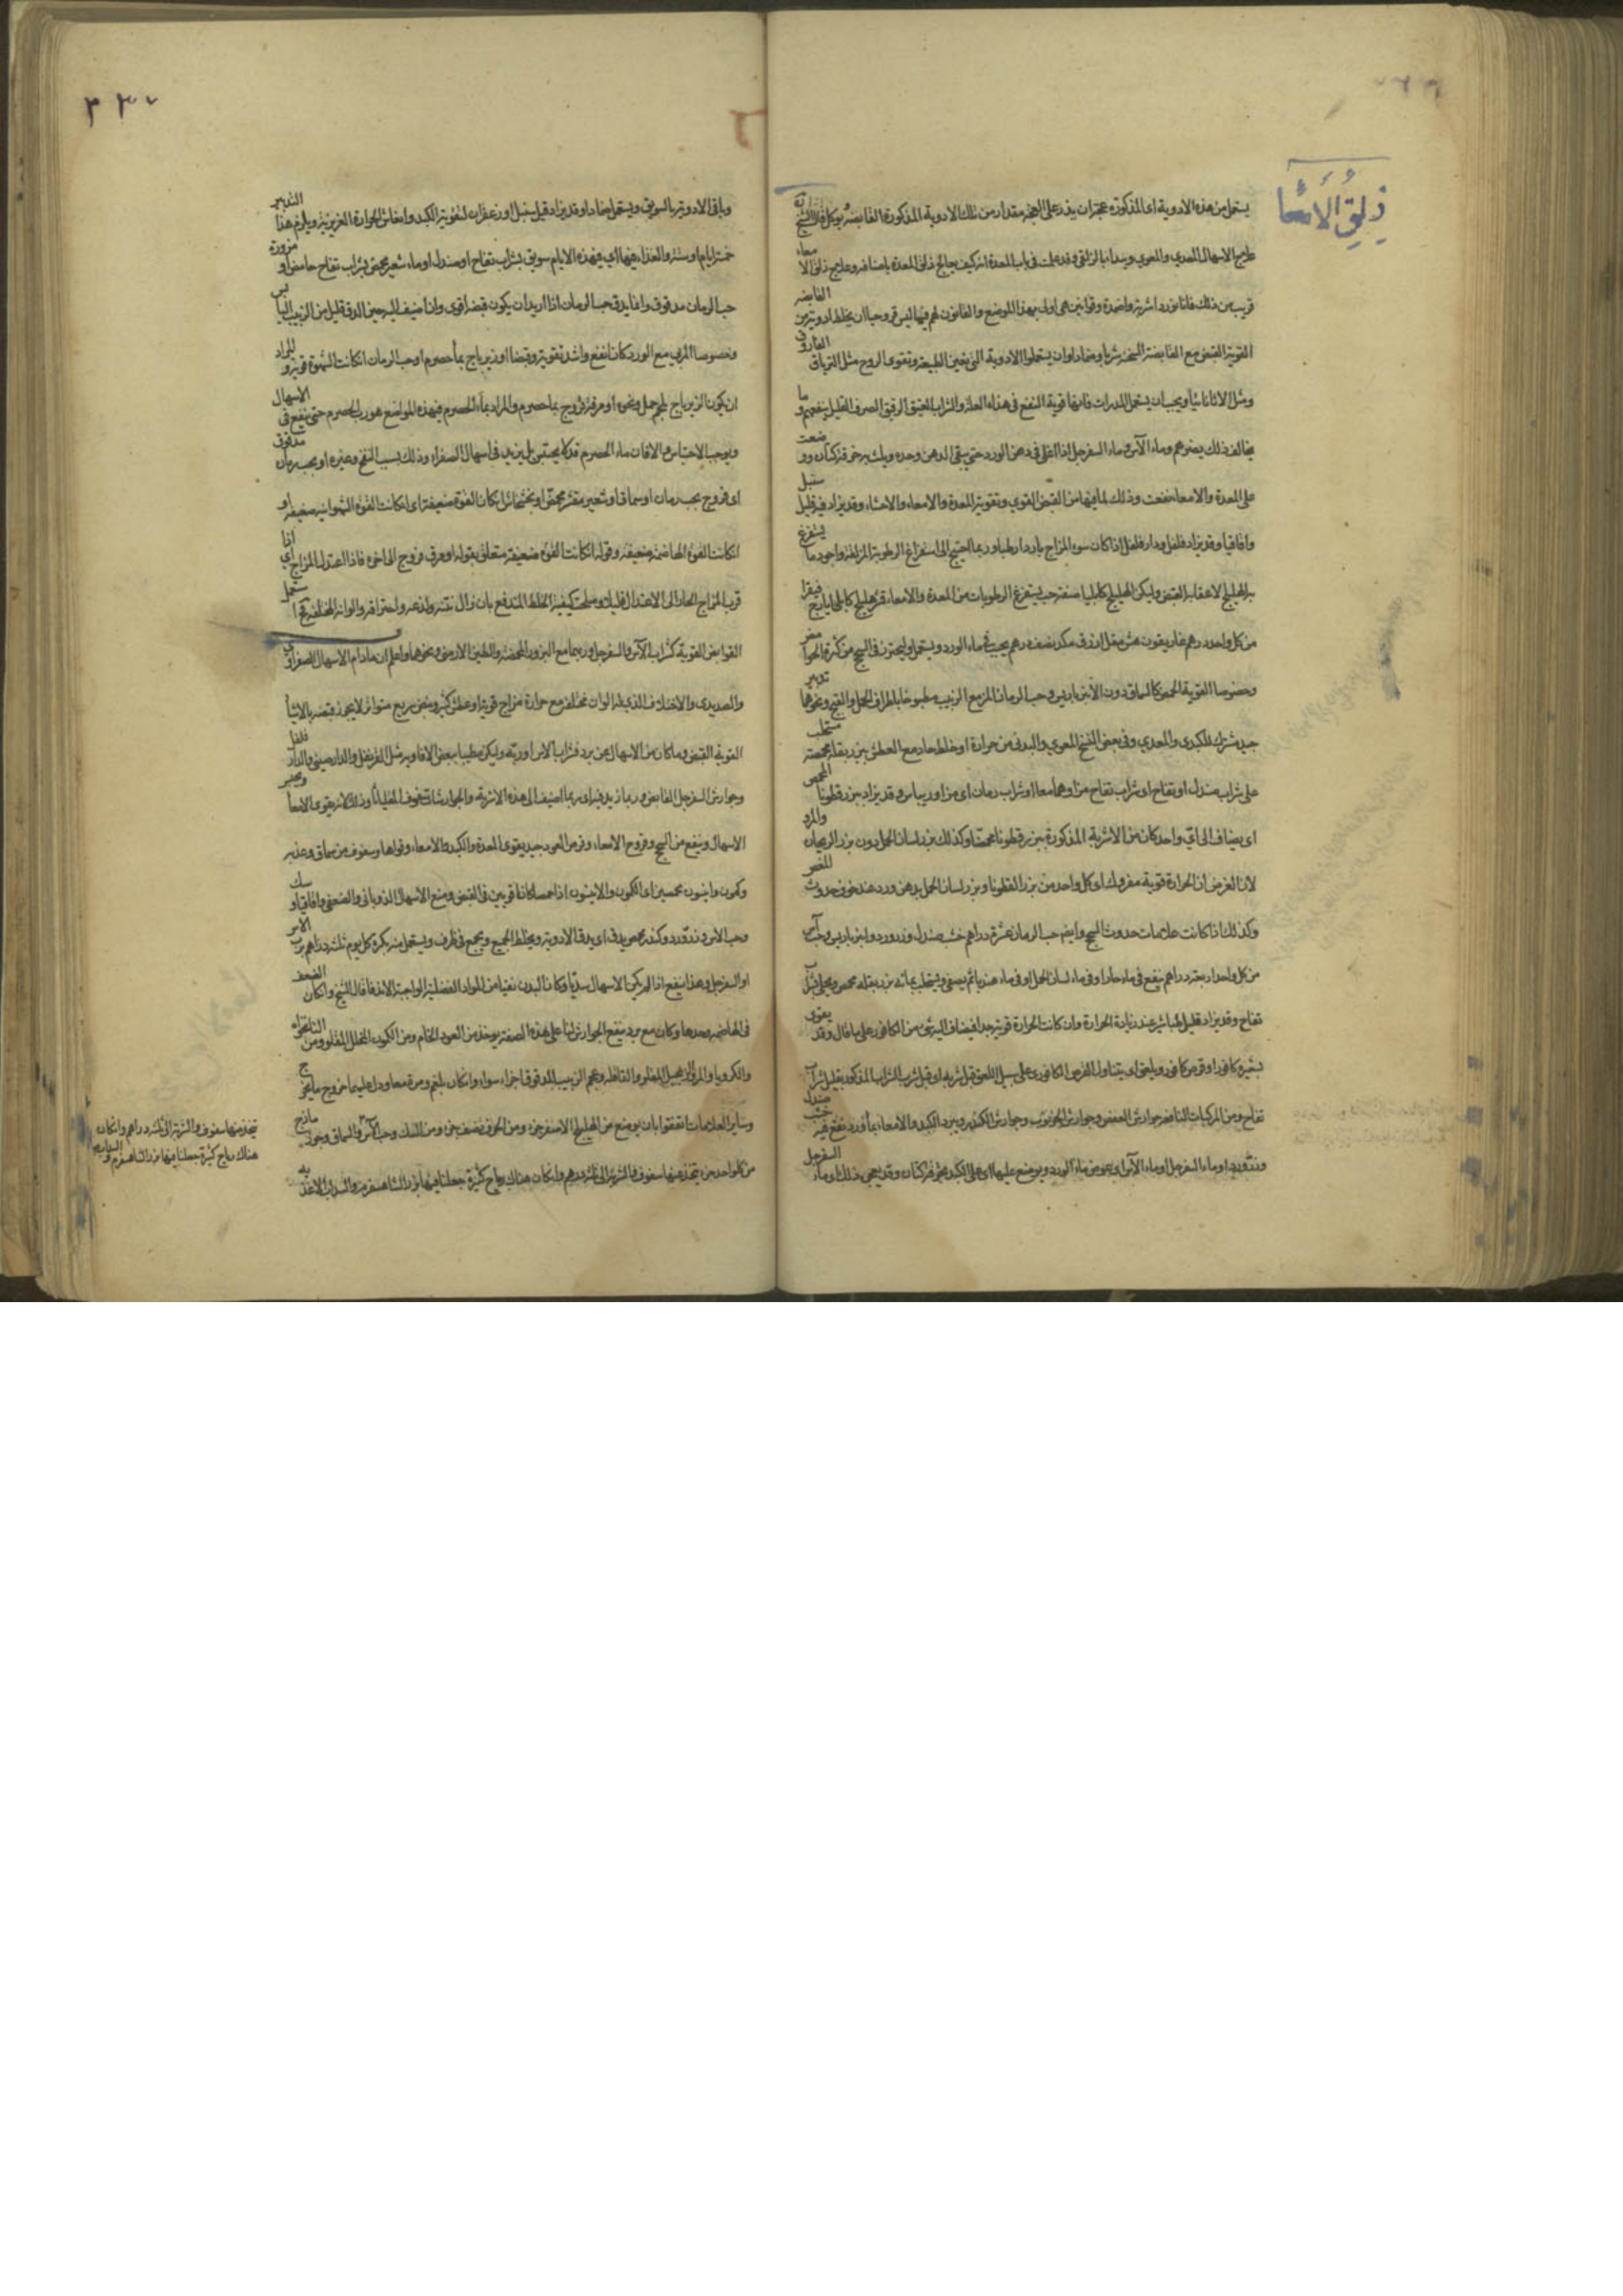 زلق الأمعا
يستعمل من هذه الادوية اى المذكورة عجزات يذر على العجة مقدار من تلك الادوية المذكورة القابضة يوكل قال الشيخ
علاج الاسهال المعدي والمعوي ويبداء بالزلقى وقد علمت فى باب المعدة انه كيف يعالج زلق المعدة باصنافه وعلاج زلق الامعاء
قريب من ذلك فانا نورد اشربة واضمدة وقوانين هى اولى بهذا الموضع والقانون لهم فيها ليس قروحيا ان يخلط ادوية من القابضه
القوية القبض مع القابضة المسخنة شربا وضمادا وان يستعملوا الادوية التى تعين الطبيعة وتقوى الروح مثل الترياق الفاروق
ومثل الاثاناسيا ويجب ان يستعمل المدرات فانها قوية النفع فى هذه العلة والشراب العتيق الرقيق الصرف القليل ينفعهم وما
يخالف ذلك يضرهم وماء الآس وماء السفرجل اذا اغلى فى دهن الورد حتى يبقى الدهن وحده ويشرب خرقة كتان ووضعت
على المعدة والامعاء نفعت وذلك لما فيها من القبض القوي وتقوية المعدة والامعاء والاحشاء وقد يزاد فيه قليل سنبل
واقاقيا وقد يزاد فلفل ودار فلفل اذا كان سوء المزاج باردا رطبا وربما احتيج الى استفراغ الرطوبة المزلقة واجود ما يستفرغ
به الهليلج لاعقابه القبض وليكن الهليلج كابليا صنعة حب يستفرغ الرطوبات من المعدة والامعاء قشر هليلج كابلى ايارج فيقرا
من كل واحد درهم غاريقون مقل ازرق مكد نصف درهم يحبب بماء الورد ويستعمل وليحترز فى السحج من كثرة الحوامض
وخصوصا القوية الحمض كالسماق دون الانبرباريس وحب الرمان المز مع الزبيب مطبوخا باطراف الحمل والقبج ونحوها تدبير
جيد مشترك للكبدي والمعدي وفى بعض النسخ المعوي والبدنى من حرارة او خلط حاد مع العطش بزر بقلة محمصة مستحلب
على شراب صندل او تفاح اى شراب تفاح مز او هما معا او شراب رمان اى مز او ريباس وقد يزاد بزر قطونا المحمص
اى يضاف الى اى واحد كان من الاشربة المذكورة بزر قطونا محمصا وكذلك بزر لسان الحمل دون بزر الريحان والمرو
لان الغرض ان الحرارة قوية مفروك اى كل واحد من بزر القطونا وبزر لسان الحمل بدهن ورد عند خوف حدوث المغص
وكذلك اذا كانت علامات حدوث السحج وايضا حب الرمان عشرة دراهم خشب صندل وزرورد وانبرباريس وحب آس
من كل واحد اربعة دراهم ينقع فى ماء حار او فى ماء لسان الحمل او فى ماء هندبا ثم يصفى ويستحلب بمائه بزر بقلة محمص ويحلى بشراب
تفاح وقد يزاد قليل طباشير عند زيادة الحرارة وان كانت الحرارة قوية جدا فيضاف اليه شئ من الكافور على ما قال وقد يقوى
بشعيرة كافور او قرص كافور ويلعق اى يتناول القرص الكافورى على سبيل اللعق قبل شربه اى قبل شرب الشراب المذكور بقليل شراب
تفاح ومن المركبات النافعة جوارش العفص وجوارش الخرنوب وجوارش الكندر ويبرد الكبد والامعاء بماورد نقع فيه خشب صندل
وزرورد او ماء السفرجل او ماء الآس اى بعوض ماء الورد ويوضع عليها اى على الكبد نحو خرقة كتان وقد يعجن ذلك او ماء السفرجل
٣٣٧
وباقى الادوية بالسويق ويستعمل ضمادا وقد يزاد قليل سنبل او زعفران لتقوية الكبد وانعاش الحرارة الغريزية ويلزم هذا التدبير
خمسة ايام او ستة والغذاء فيها اي فى هذه الايام سويق بشراب تفاح او صندل او ماء شعير محمص بشراب تفاح حامض او مزورة
حب الرمان مدقوق وانما يدق حب الرمان اذا اريد ان يكون قبضه اقوى وان اضيف اليه حين الدق قليل من الزبيب اليابس
وخصوصا المربى مع الورد كان انفع واشد تقوية وقبضا او زيرباج بماء حصرم او حب الرمان ان كانت الشهوة قوية والمراد
ان يكون الزيرباج بلحم حمل ونحوه او مرقة فروج بماء حصرم والمراد بماء الحصرم فى هذه المواضع هو رب الحصرم حتى ينفع فى الاسهال
ويوجب الاحتباس والا فان ماء الحصرم قد لا يحتبس بل يزيد فى اسهال الصفراء وذلك بسبب النفخ وغيره او بحب رمان مدقوق
اى فروج بحب رمان او سماق او شعير مقشر محمص او خشخاش ان كان القوة ضعيفة اى ان كانت القوة الشهوانية ضعيفة او
ان كانت القوة الهاضمة ضعيفة وقوله ان كانت القوة ضعيفة متعلق بقوله او مرق فروج الى اخره فاذا اعتدل المزاج اي اذا
قرب المزاج الحاد الى الاعتدال قليلا وصلحت كيفية الخلط المندفع بان زال نتنه ولذعه واحتراقه والوانه المختلفة يستعمل
القوابض القوية كشراب الآس والسفرجل وربهما مع البزور المحمصة والطين الارمنى ونحوهما واعلم ان ما دام الاسهال الصفراوى
والصديدي والاختلاف الذي له الوان مختلفة مع حرارة مزاج قوية او عطش كثير ونبض سريع متواتر لا يجوز قبضه بالاشياء
القوية القبض وما كان من الاسهال عن برد فشراب الاس او ربه وليكن مطيبا ببعض الافاويه مثل القرنفل والدارصينى والدار فلفل
وجوارش السفرجل القابض وربما زيد فيه اى ربما اضيف الى هذه الاشربة والجوارشات سفوف المقلياثا وذلك لانه يقوى الامعاء ويحبس
الاسهال وينفع من السحج وقروح الامعاء وقرص العود جيد يقوى المعدة والكبد والامعاء وقواها وسفوف من سماق وغبيراء
وكمون وانيسون محمصين اى الكمون والانيسون اذا حمصا كانا قويين فى القبض ومنع الاسهال الذوبانى والضعفى واقاقيا وسك
وحب الاس وزرورد وكندر محمص يدق اى يدق الادوية ويخلط الجميع ويجمع فى ظرف ويستعمل منه بكرة كل يوم ثلثة دراهم برب الاس
او السفرجل وهذا ينفع اذا لم يكن الاسهال سدديا وكان البدن نقيا من المواد الفضلية الواجبة الاندفاع قال الشيخ وان كان الضعف
فى الهاضمة وحدها وكان مع برد ينفع الجوارش لنا على هذه الصفة يوخذ من العود الخام ومن الكمون المخلل المقلو ومن النانخواه
والكرويا والزنجبيل المقلو والقاقلة وعجم الزبيب المدقوق اجزاء سواء وان كان بلغم ومرة معا ودل عليهما خروج ما يخرج
وساير العلامات اتفقوا بان يوضع من الهليلج الاصفر جزء ومن الحرف نصف جزء ومن السك وحب الآس والسماق وجوز مازج
من كل واحد جزء يتخذ منها سفوف والشربة الى ثلثة دراهم وان كان هناك رياح كثيرة جعلنا فيها بزر الشاهسفرم والسداب الاغذيه
يتخذ منها سفوف والشربة الى ثلثة دراهم وان كان
هناك رياح كثيرة جعلنا فيها بزر الشاهسفرم والسداب